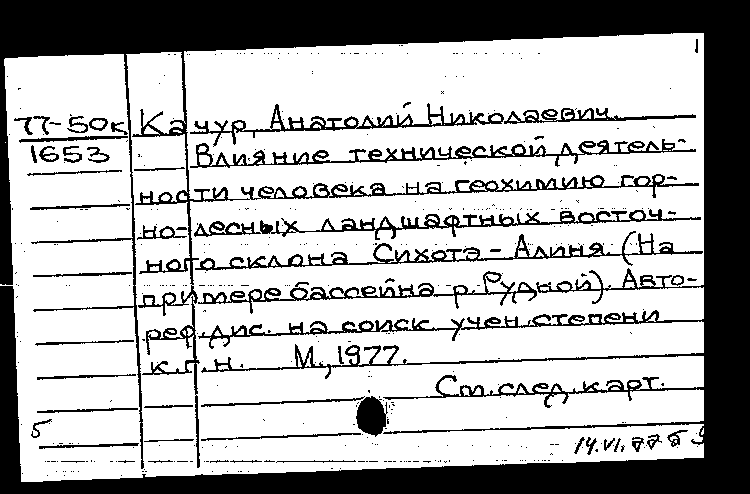 77-50к Качур, Анатолий Николаевич.
1653 Влияние технической деятель-
ности человека на геохимию гор-
но-лесных ландшафтных восточ-
ного склона Сихотэ-Алиня. (На
примере бассейна р. Рудной). Авто-
реф. дис. на соиск. учен. степени
к.г.н. М., 1977.
См. след. карт.
5
14.VI.77